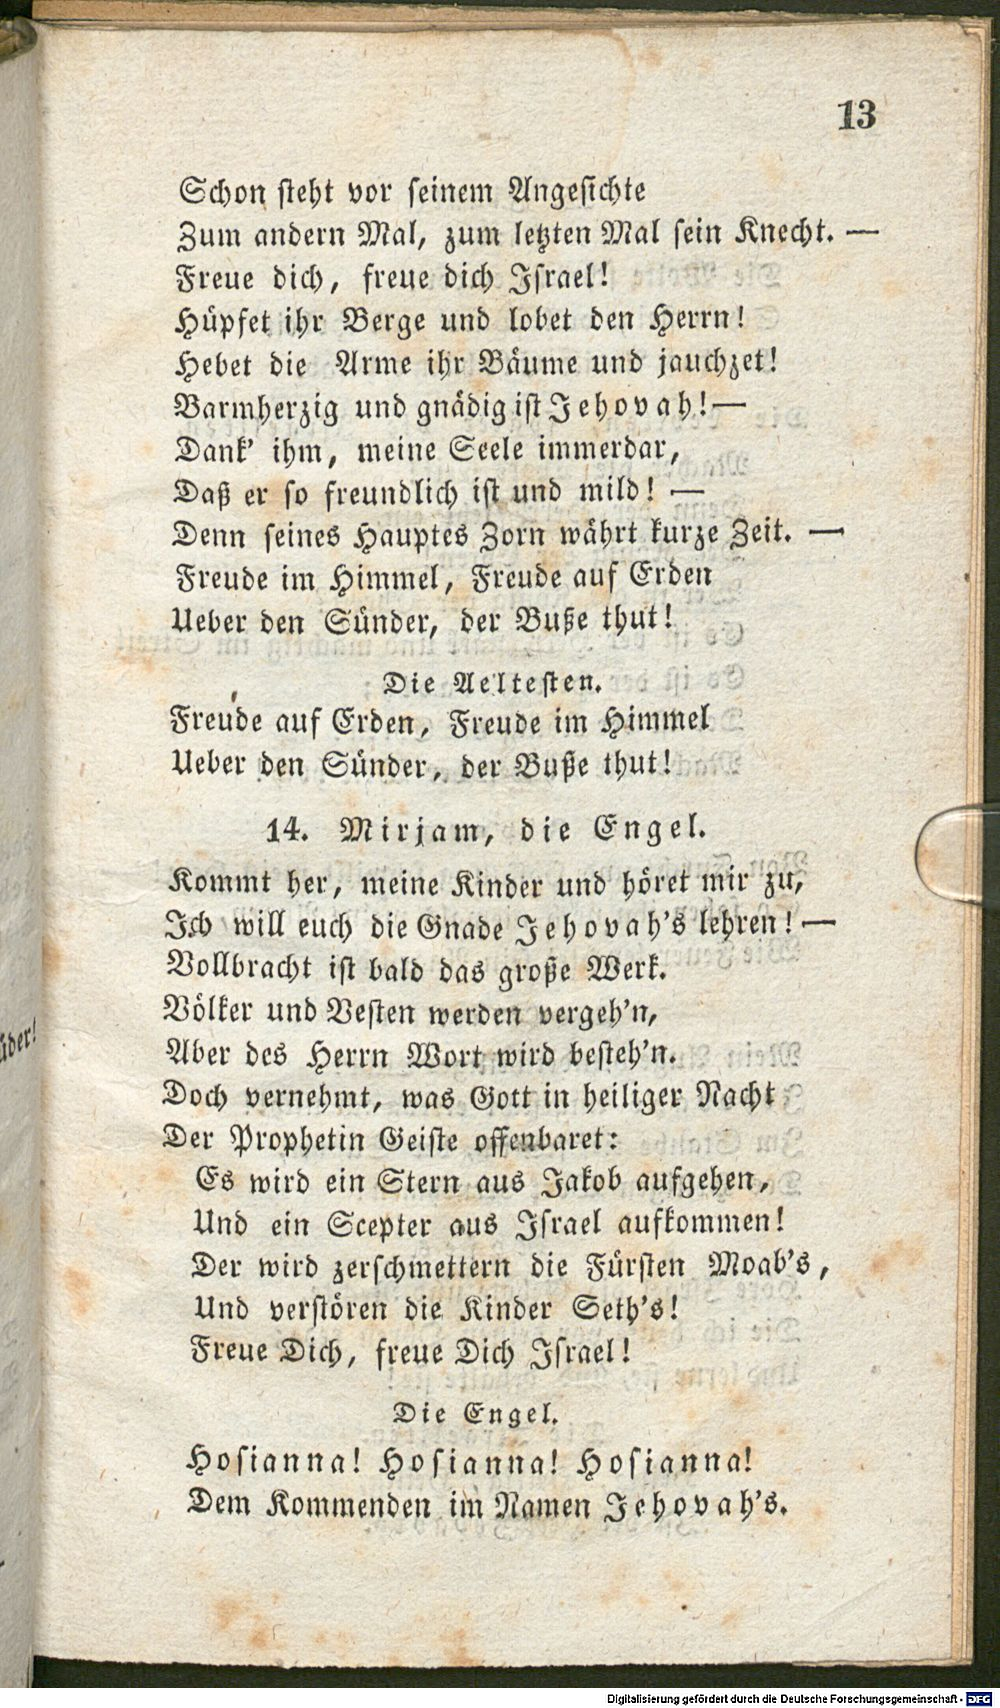 13
Schon steht vor seinem Angesichte
Zum andern Mal, zum letzten Mal sein Knecht. —
Freue dich, freue dich Israel!
Hüpfet ihr Berge und lobet den Herrn!
Hebet die Arme ihr Bäume und jauchzet!
Barmherzig und gnädig ist Jehovah! —
Dank' ihm, meine Seele immerdar,
Daß er so freundlich ist und mild! —
Denn seines Hauptes Zorn währt kurze Zeit. —
Freude im Himmel, Freude auf Erden
Ueber den Sünder, der Buße thut!
Die Aeltesten.
Freude auf Erden, Freude im Himmel
Ueber den Sünder, der Buße thut!
14. Mirjam, die Engel.
Kommt her, meine Kinder und höret mir zu,
Ich will euch die Gnade Jehovah's lehren! —
Vollbracht ist bald das große Werk.
Völker und Vesten werden vergeh'n,
Aber des Herrn Wort wird besteh'n.
Doch vernehmt, was Gott in heiliger Nacht
Der Prophetin Geiste offenbaret:
Es wird ein Stern aus Jakob aufgehen,
Und ein Scepter aus Israel aufkommen!
Der wird zerschmettern die Fürsten Moab's,
Und verstören die Kinder Seth's!
Freue Dich, freue Dich Israel!
Die Engel.
Hosianna! Hosianna! Hosianna!
Dem Kommenden im Namen Jehovah's.
Digitalisierung gefördert durch die Deutsche Forschungsgemeinschaft - DFG